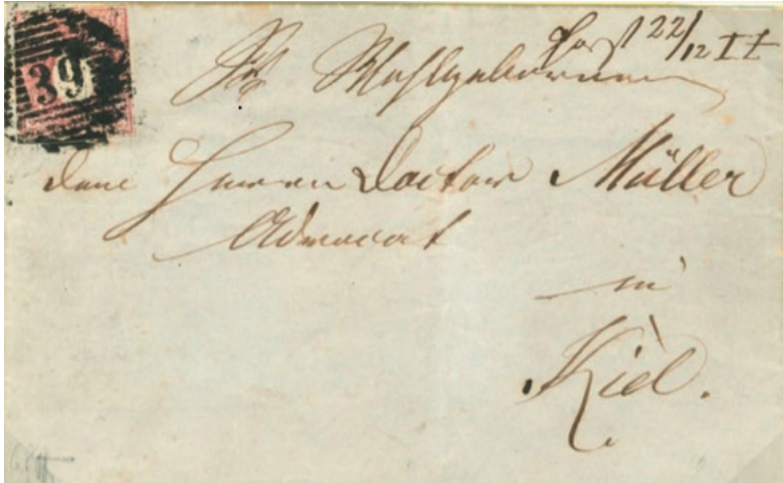 39
22/12 II
Sr Wohlgeboren
dem Herrn Doctor Müller
Advocat
in
Kiel.